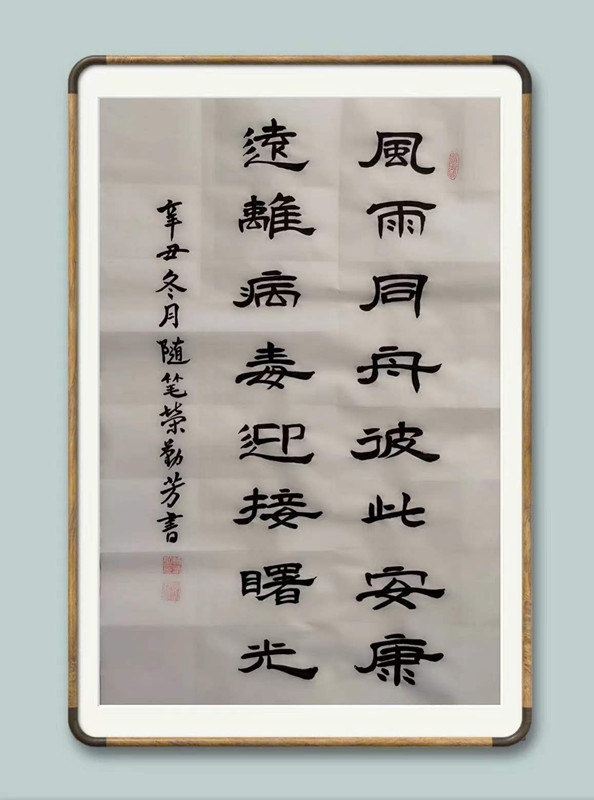 風雨同舟彼此安康
遠離病毒迎接曙光
辛丑冬月随笔榮勤芳書